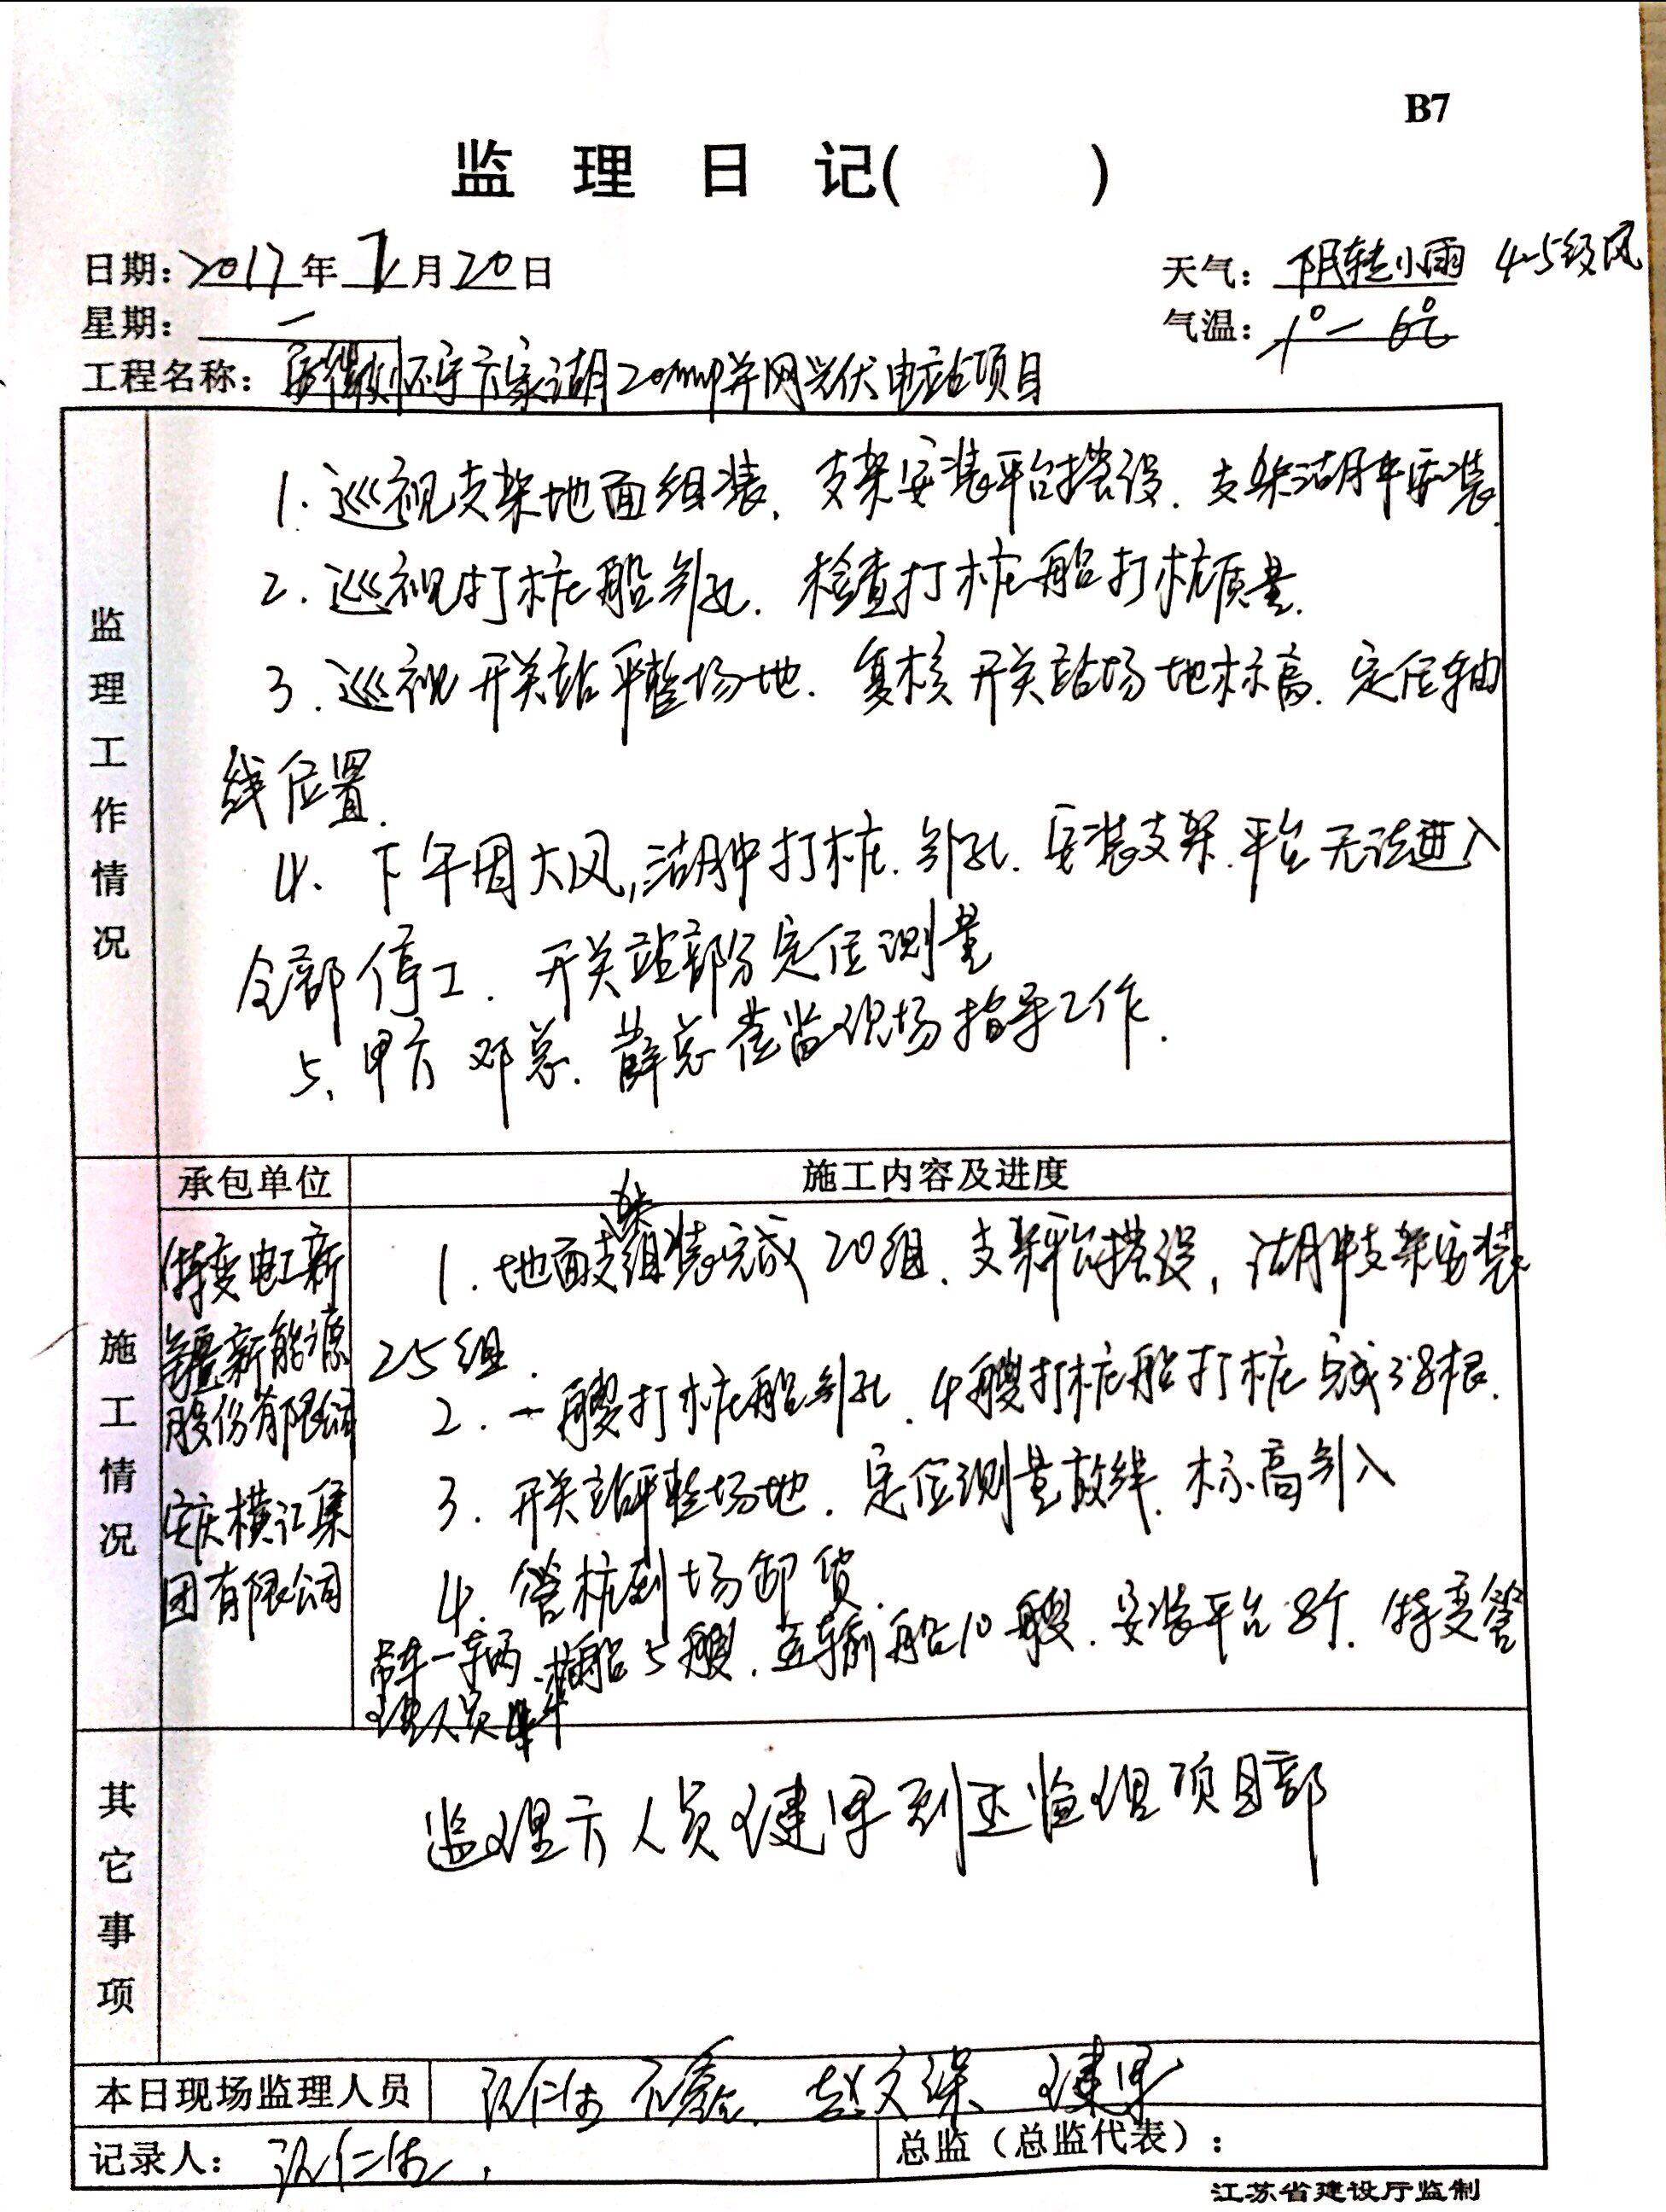 B7
监 理 日 记( )
日期: 2017 年 2 月 20 日
天气: 阴转小雨 4-5级风
星期: 一
气温: 1°— 6℃
工程名称: 安徽怀宁六家湖20MWP并网光伏电站项目
监理工作情况
1. 巡视支架地面组装、支架安装平台搭设、支架湖中安装
2. 巡视打桩船引孔、检查打桩船打桩质量.
3. 巡视开关站平整场地、复核开关站场地标高、定位轴
线位置.
4、下午因大风,湖中打桩、引孔、安装支架、平台无法进入
全部停工、开关站部分定位测量
5、甲方邓总、薛总莅临现场指导工作.
施工情况
承包单位
施工内容及进度
特变电工新
疆新能源
股份有限公司
安庆横江集
团有限公司
1. 地面支架组装完成20组、支架平台搭设,湖中支架安装
25组.
2. 一艘打桩船引孔、4艘打桩船打桩完成38根.
3. 开关站平整场地、定位测量放线、标高引入
4. 管桩到场卸货.
吊车一辆、桩船5艘、运输船10艘、安装平台8个、特变管
理人员
其它事项
监理方人员 建军到达监理项目部
本日现场监理人员
赵文 建军
记录人:
总监（总监代表）:
江苏省建设厅监制